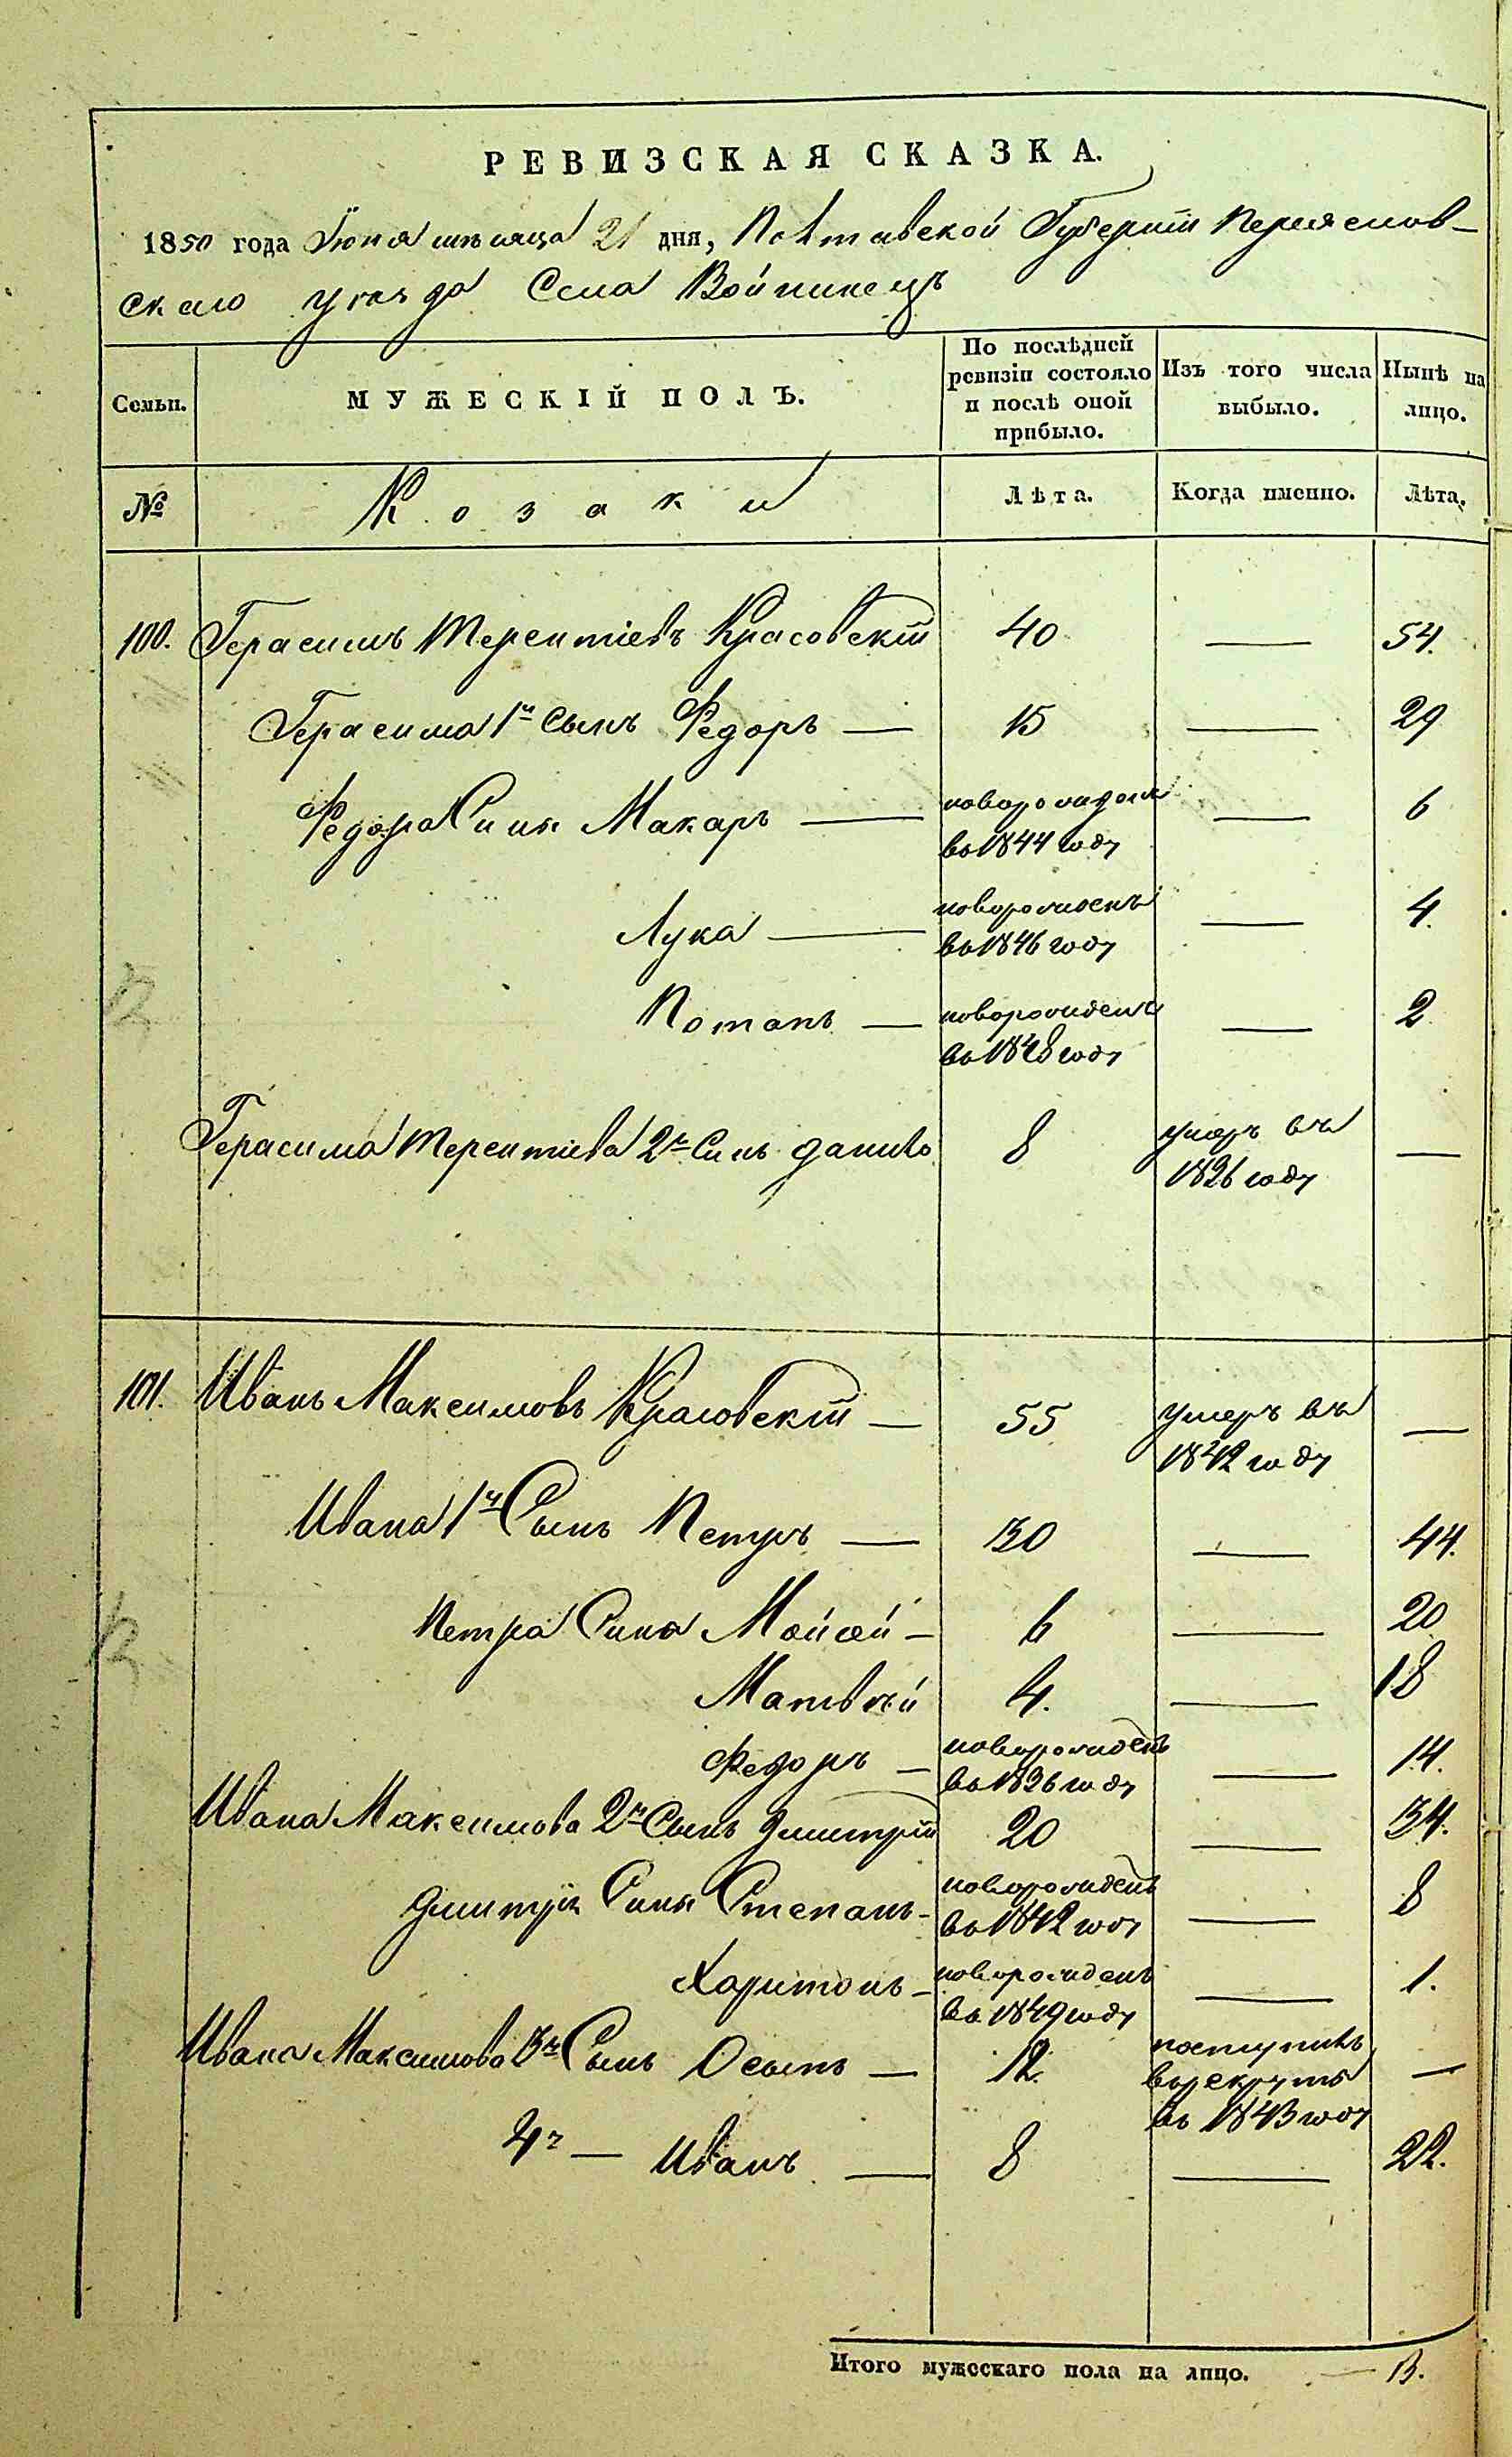 РЕВИЗСКАЯ СКАЗКА.
1850 года Іюня мѣсяца 21 дня, Полтавской Губерніи Переяслов-
скаго уѣзда Села Войтинецъ
Семьи. МУЖЕСКІЙ ПОЛЪ. По послѣдней ревизіи состояло и послѣ оной прибыло. Изъ того числа выбыло. Нынѣ на лицо.
№ Козаки Лѣта. Когда именно. Лѣта.
100. Герасимъ Терентіевъ Красовскій 40 — 54.
Герасима 1й Сынъ Федоръ — 15 — 29
Федора Сины Макаръ — новорожденъ въ 1844 году — 6
Лука — новорожденъ въ 1846 году — 4.
Потапъ — новорожденъ въ 1848 году — 2
Герасима Терентіева 2й Синъ Данило 8 умеръ въ 1836 году —
101. Иванъ Максимовъ Красовскій — 55 умеръ въ 1842 году —
Ивана 1й Сынъ Петръ — 30 — 44.
Петра Сины Мойсей — 6 — 20
Матвѣй 4. — 18
Федоръ — новорожденъ въ 1836 году — 14.
Ивана Максимова 2й Сынъ Дмитрій 20 — 34.
Дмитрія Сины Степанъ — новорожденъ въ 1842 году — 8
Харитонъ — новорожденъ въ 1849 году — 1.
Ивана Максимова 3й Сынъ Осыпъ — 12. поступилъ въ рекруты въ 1843 году —
4й — Иванъ — 8 — 22.
Итого мужескаго пола на лицо. — 13.